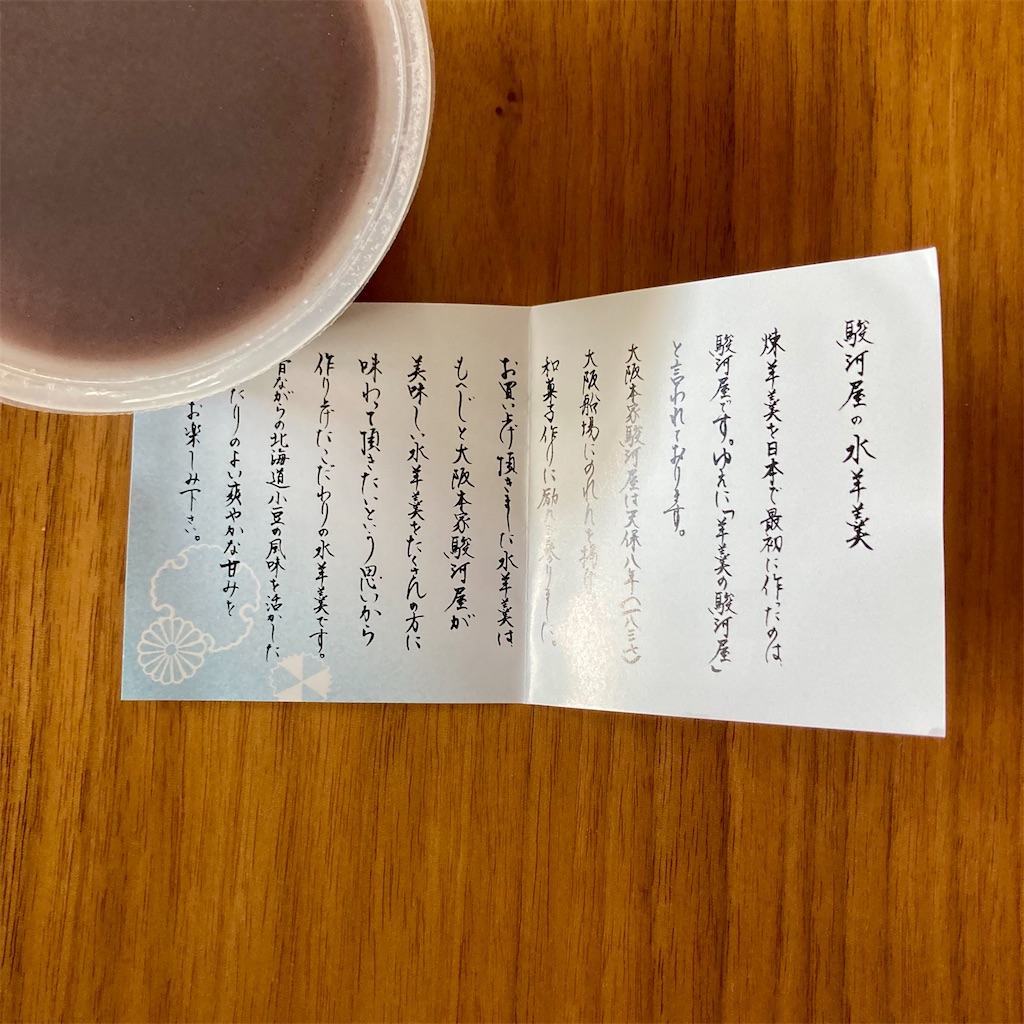 駿河屋の水羊羹
煉羊羹を日本で最初に作ったのは、
駿河屋です。ゆえに「羊羹の駿河屋」
と言われております。
大阪本家駿河屋は天保八年(一八三七)
大阪船場にのれんを掲げ
和菓子作りに励んで参りました。
お買い上げ頂きました水羊羹は
もへじと大阪本家駿河屋が
美味しい水羊羹をたくさんの方に
味わって頂きたいという思いから
作り上げたこだわりの水羊羹です。
昔ながらの北海道小豆の風味を活かした
たりのよい爽やかな甘みを
お楽しみ下さい。